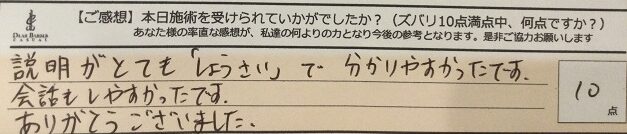 【ご感想】本日施術を受けられていかがでしたか？（ズバリ10点満点中、何点ですか？）
あなた様の率直な感想が、私達の何よりの力となり今後の参考となります。是非ご協力お願いします
説明がとても「しょうさい」で 分かりやすかったです.
会話もしやすかったです.
ありがとうございました.
10
点